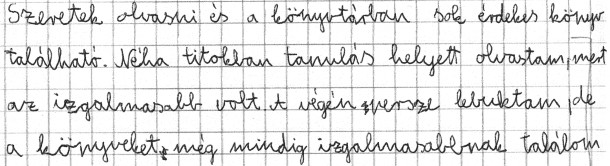 Szeretek olvasni és a könyvtárban sok érdekes könyv
található. Néha titokban tanulás helyett olvastam, mert
az izgalmasabb volt. A végén persze lebuktam, de
a könyveket még mindig izgalmasabbnak találom